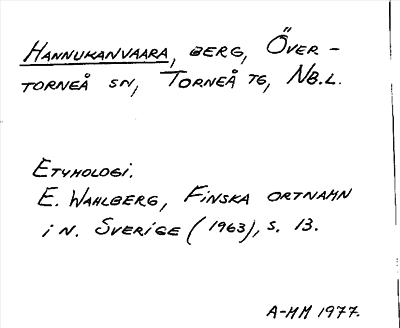 HANNUKANVAARA, BERG, ÖVER-
TORNEÅ SN, TORNEÅ TG, NB.L.
ETYMOLOGI.
E. WAHLBERG, FINSKA ORTNAMN
I N. SVERIGE (1963), S. 13.
A-MM 1977.